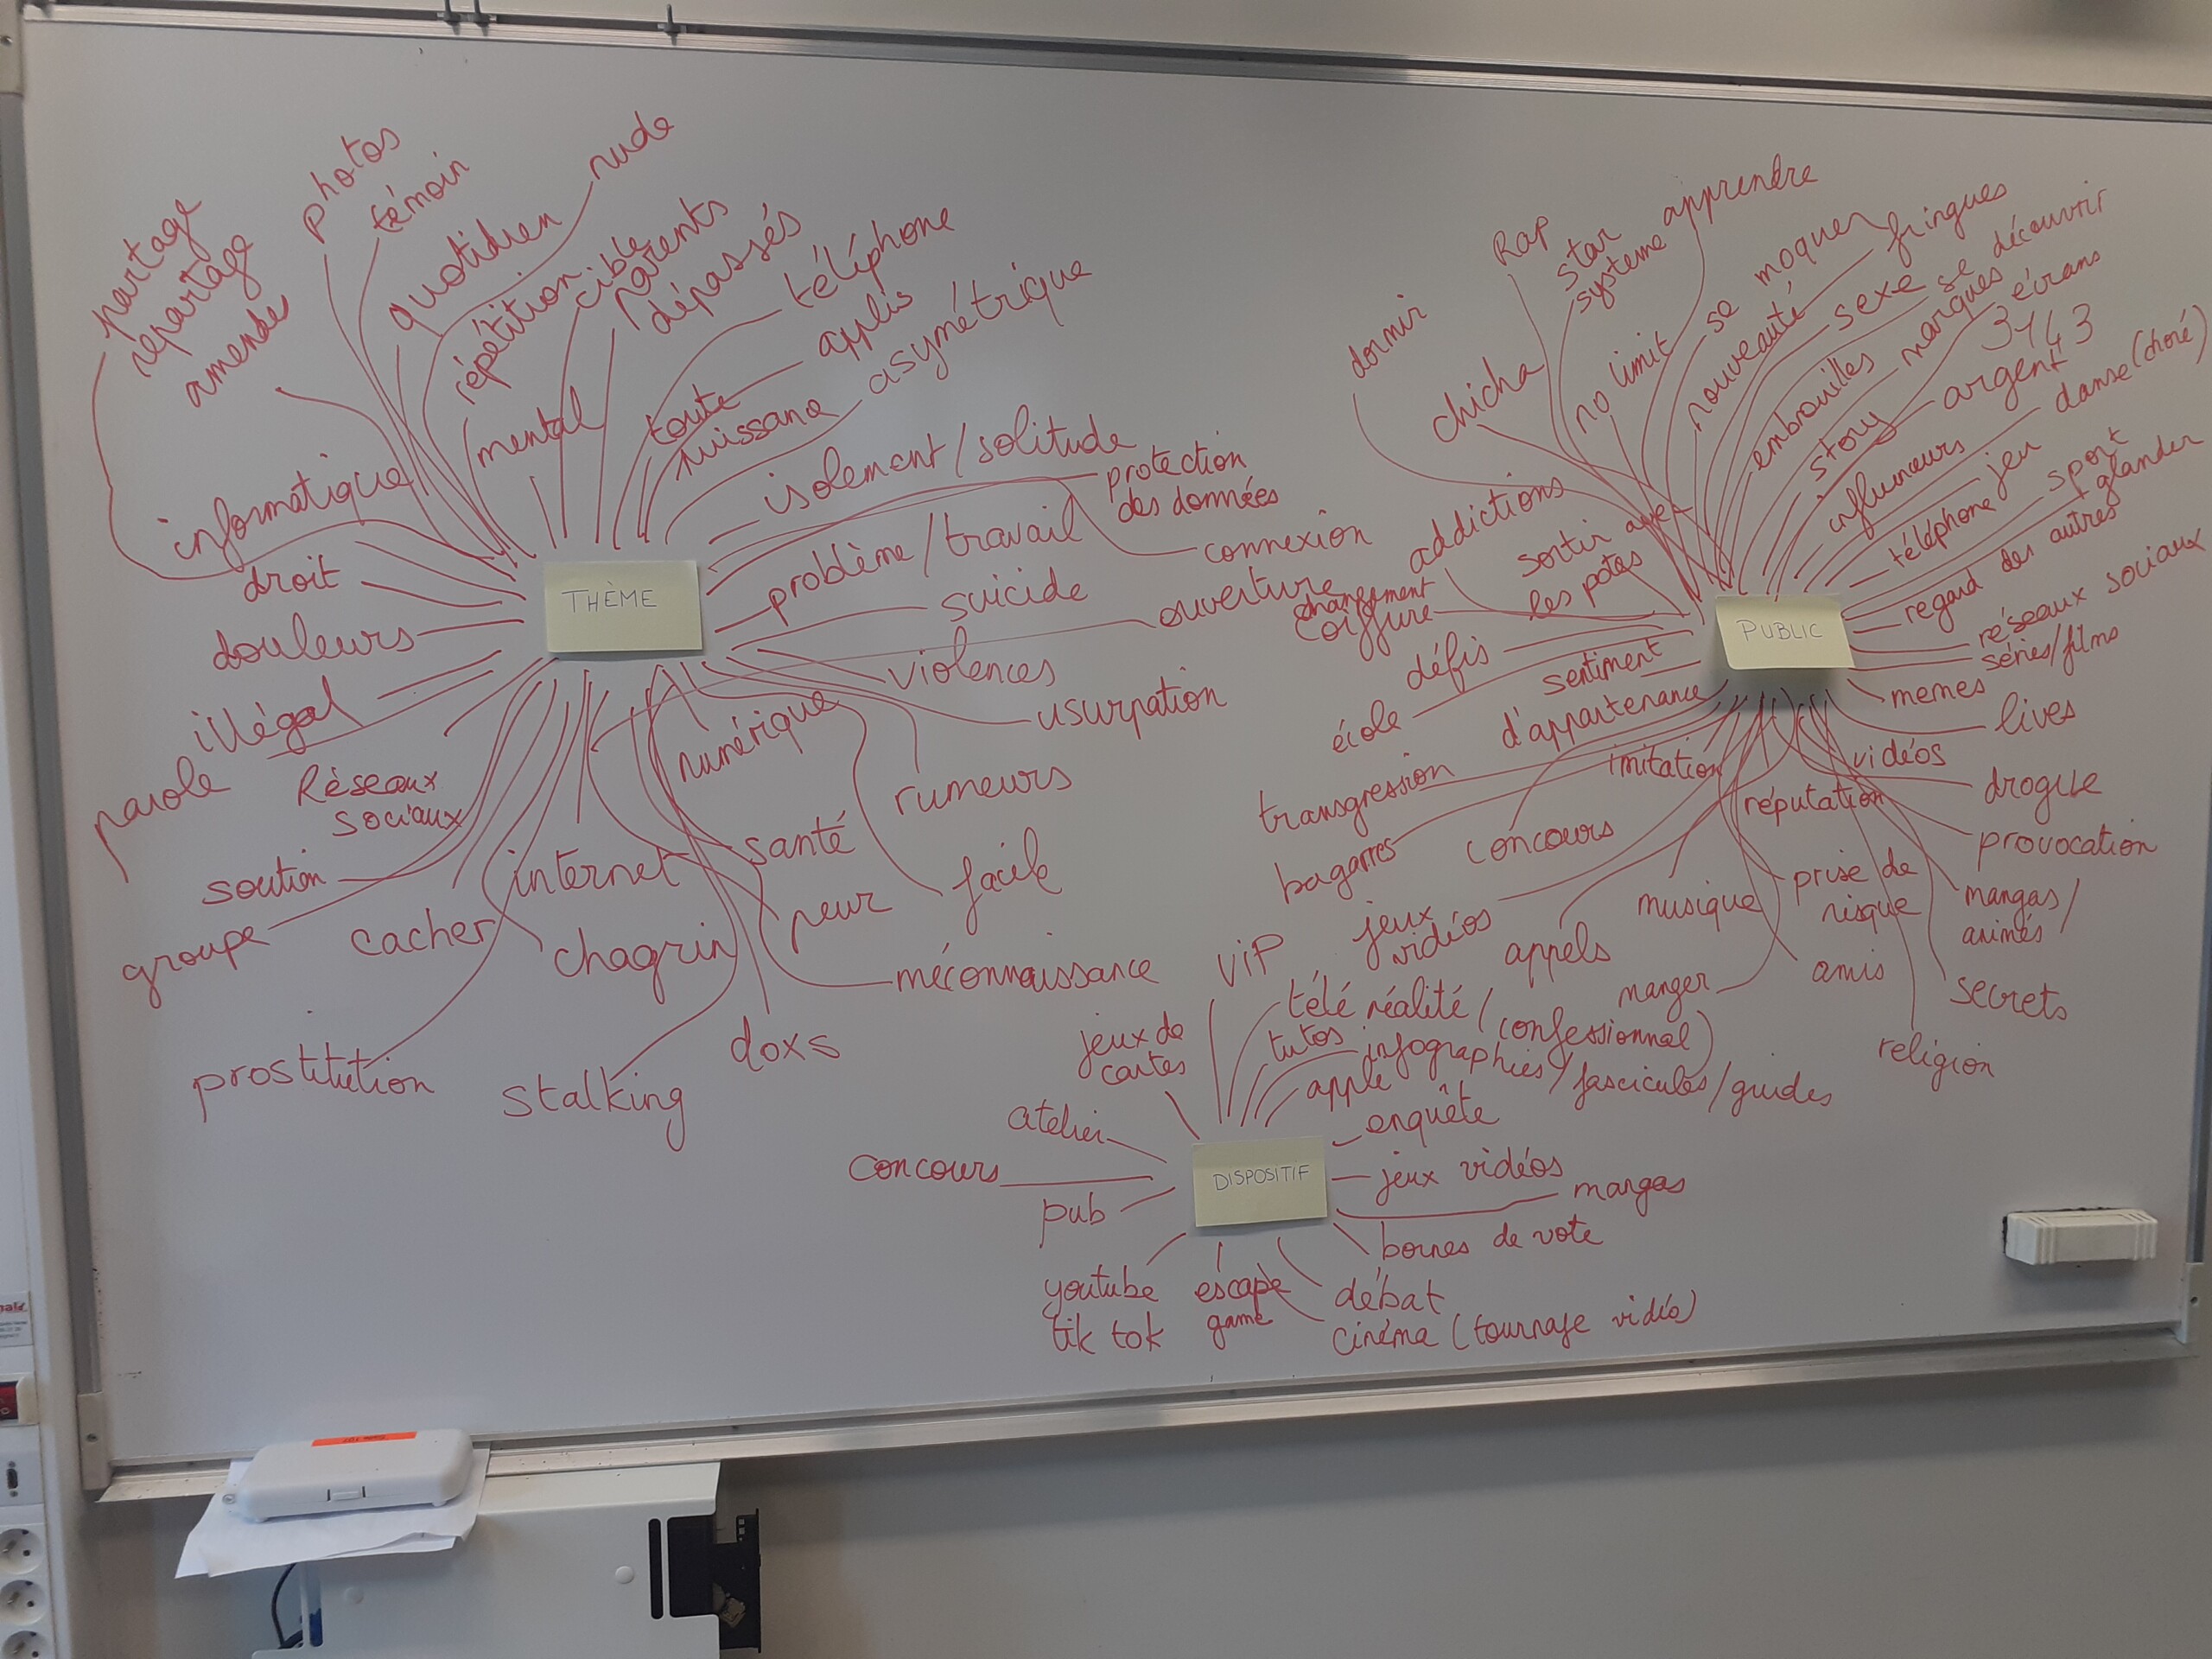 partage
répartage
amende
photos
témoin
quotidien
nude
répétition
cible
parents
dépassés
téléphone
applis
asymétrique
mental
toute
puissance
isolement/solitude
protection
des données
connexion
informatique
droit
douleurs
illégal
parole
THÈME
problème/travail
suicide
ouverture
violences
usurpation
numérique
rumeurs
Réseaux
sociaux
soution
groupe
cacher
internet
santé
facile
peur
chagrin
méconnaissance
prostitution
stalking
doxs
dormir
Rap
star
systeme
apprendre
chicha
no limit
se moquer
fringues
nouveauté
sexe
se découvrir
marques
écrans
embrouilles
3143
story
argent
danse (choré)
influnceurs
jeu
sport
téléphone
glander
regard des autres
addictions
sortir avec
les potes
changement
coiffure
PUBLIC
réseaux sociaux
séries/films
memes
lives
défis
sentiment
d'appartenance
école
imitation
vidéos
transgression
drogue
réputation
provocation
concours
bagarres
prise de
risque
musique
mangas/
animés/
jeux
vidéos
appels
amis
manger
secrets
religion
VIP
télé réalité (confessionnal)
jeux de
cartes
tutos
infographies/fascicules/guides
apple
atelier
enquête
concours
DISPOSITIF
jeux vidéos
pub
mangas
bornes de vote
youtube
tik tok
escape
game
débat
cinéma (tournage vidéo)